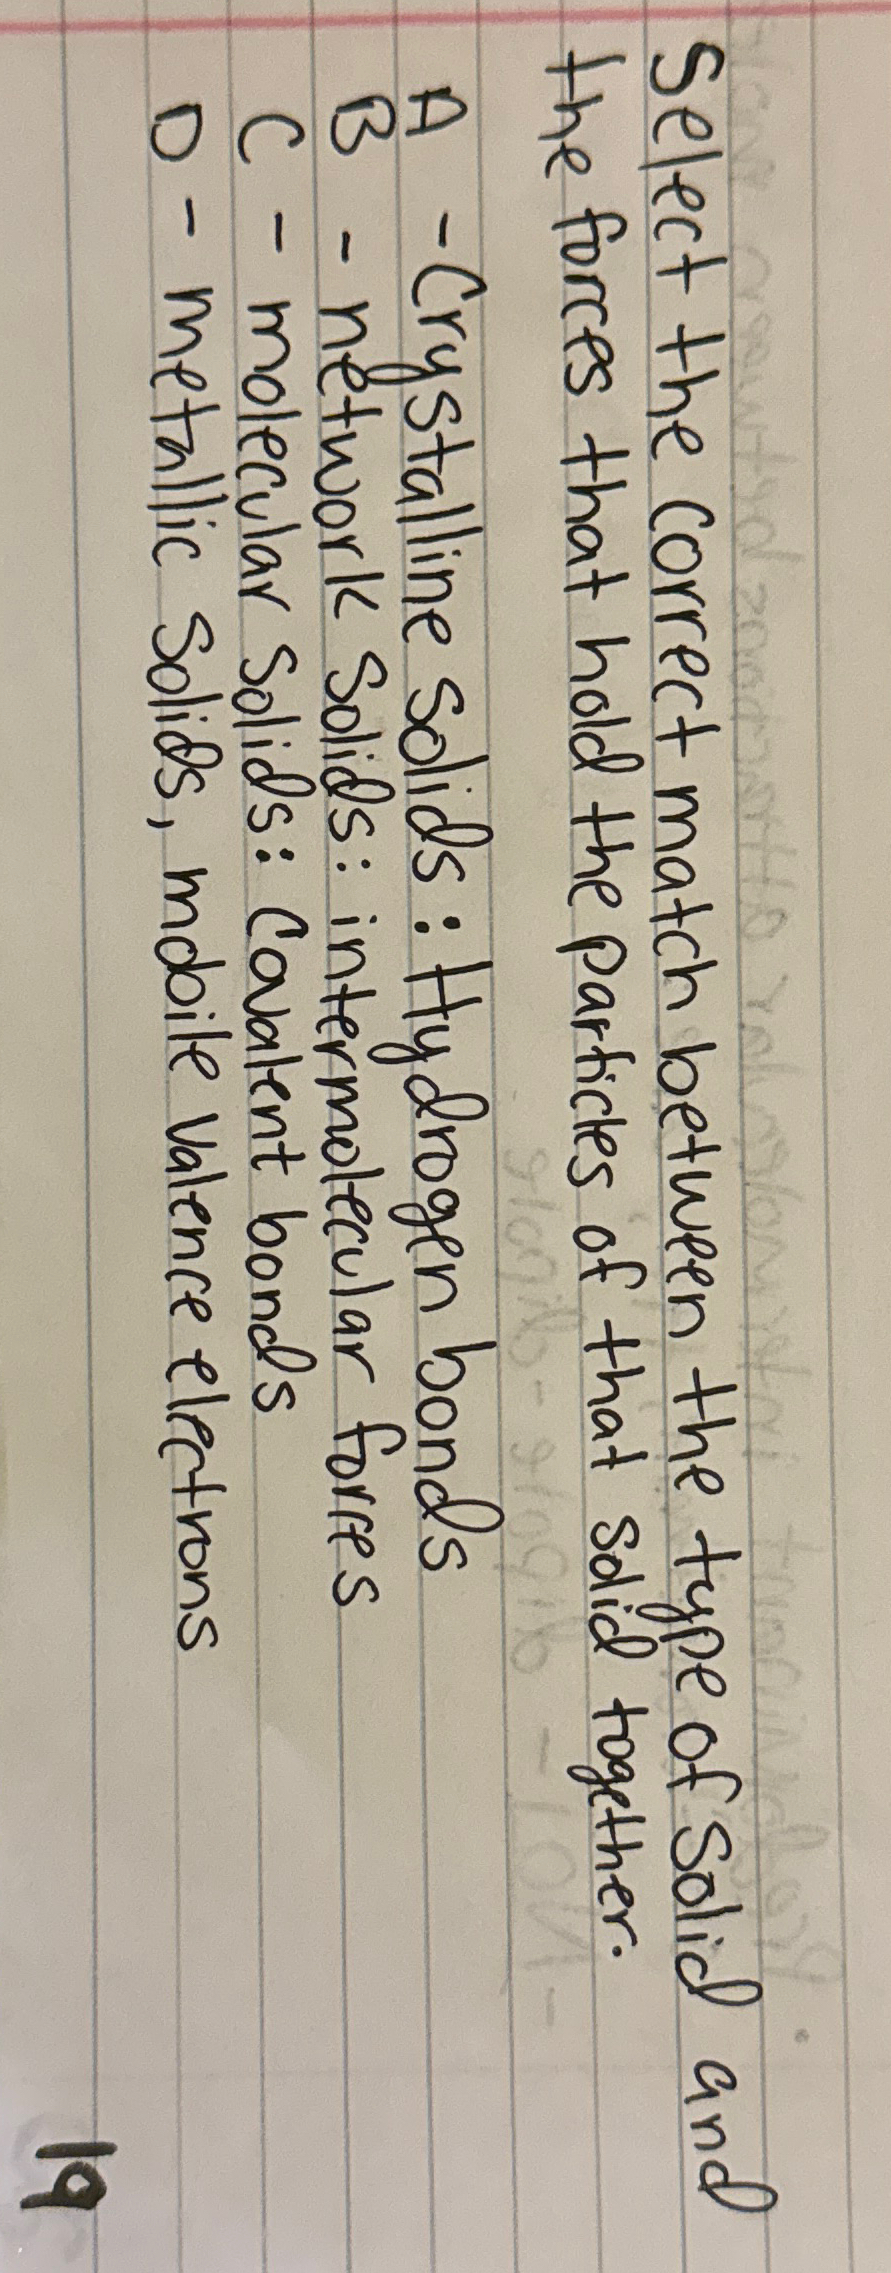 Select the correct match between the type of solid and
the forces that hold the particles of that solid together.
A - Crystalline solids : Hydrogen bonds
B - network solids : intermolecular forces
C - molecular solids : Covalent bonds
D - metallic solids, mobile valence electrons
19